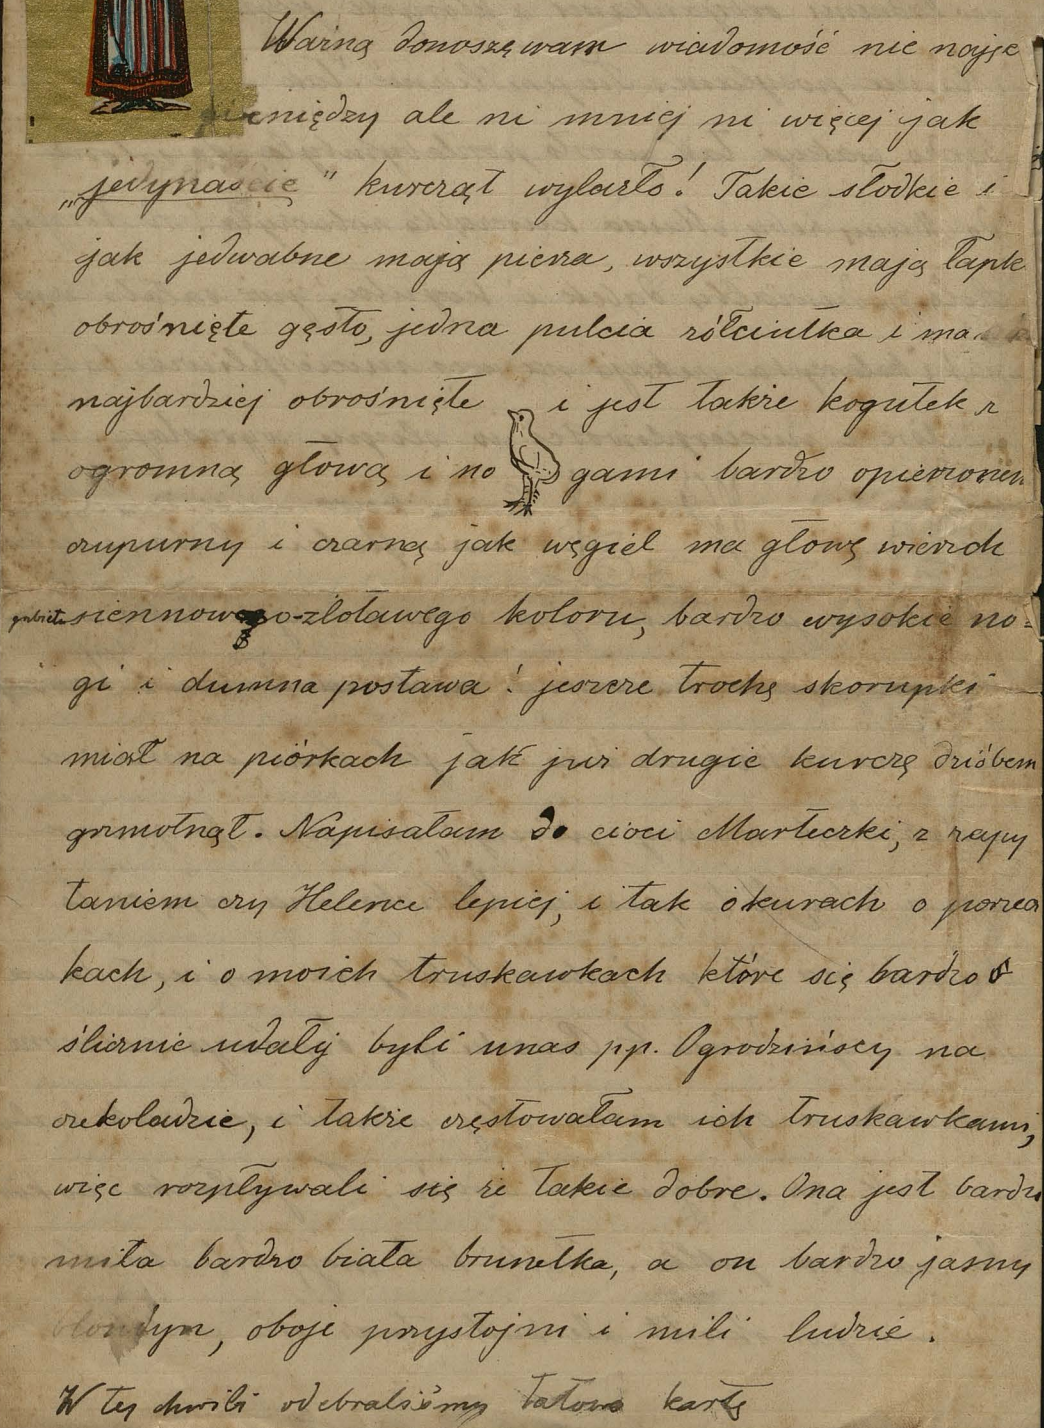 Ważną donoszę wam wiadomość nie najże
pieniędzy ale ni mniej ni więcej jak
„jedynaście" kurcząt wylazło! Takie słodkie i
jak jedwabne mają pierza, wszystkie mają łapk
obrośnięte gęsto, jedna pulcia żółciutka i ma
najbardziej obrośnięte i jest także kogutek z
ogromną głową i nogami bardzo opierzonem
czupurny i czarną jak węgiel ma głowę wierzch
siennowego-złotawego koloru, bardzo wysokie no-
gi i dumna postawa! jeszcze trochę skorupki
miał na piórkach jak już drugie kurczę dzióbem
grzmotnął. Napisałam do cioci Marteczki, z zapy
taniem czy Helence lepiej, i tak o kurach o porzecz
kach, i o moich truskawkach które się bardzo
ślicznie udały byli unas pp. Ogrodzińscy na
czekoladzie, i także częstowałam ich truskawkami,
więc rozpływali się że takie dobre. Ona jest bardzo
miła bardzo biała brunetka, a on bardzo jasny
blondyn, oboje przystojni i mili ludzie.
W tej chwili odebraliśmy tatowa kartę